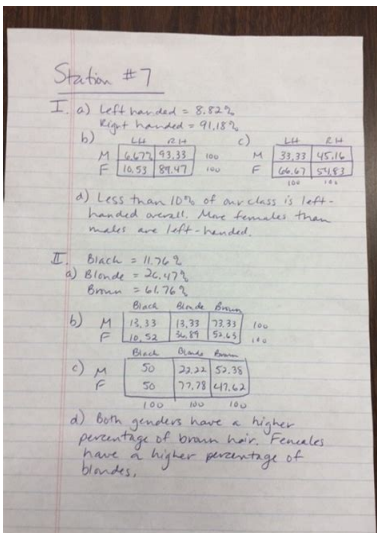 Station #7
I. a) Left handed = 8.82%
Right handed = 91.18%
b) LH RH c) LH RH
M 6.67% 93.33 100 M 33.33 45.16
F 10.53 89.47 100 F 66.67 54.83
100 100
d) Less than 10% of our class is left-
handed overall. More females than
males are left-handed.
II. Black = 11.76%
a) Blonde = 26.47%
Brown = 61.76%
Black Blonde Brown
b) M 13.33 13.33 73.33 100
F 10.52 36.89 52.63 100
Black Blonde Brown
c) M 50 22.22 52.38
F 50 77.78 47.62
100 100 100
d) Both genders have a higher
percentage of brown hair. Females
have a higher percentage of
blondes.